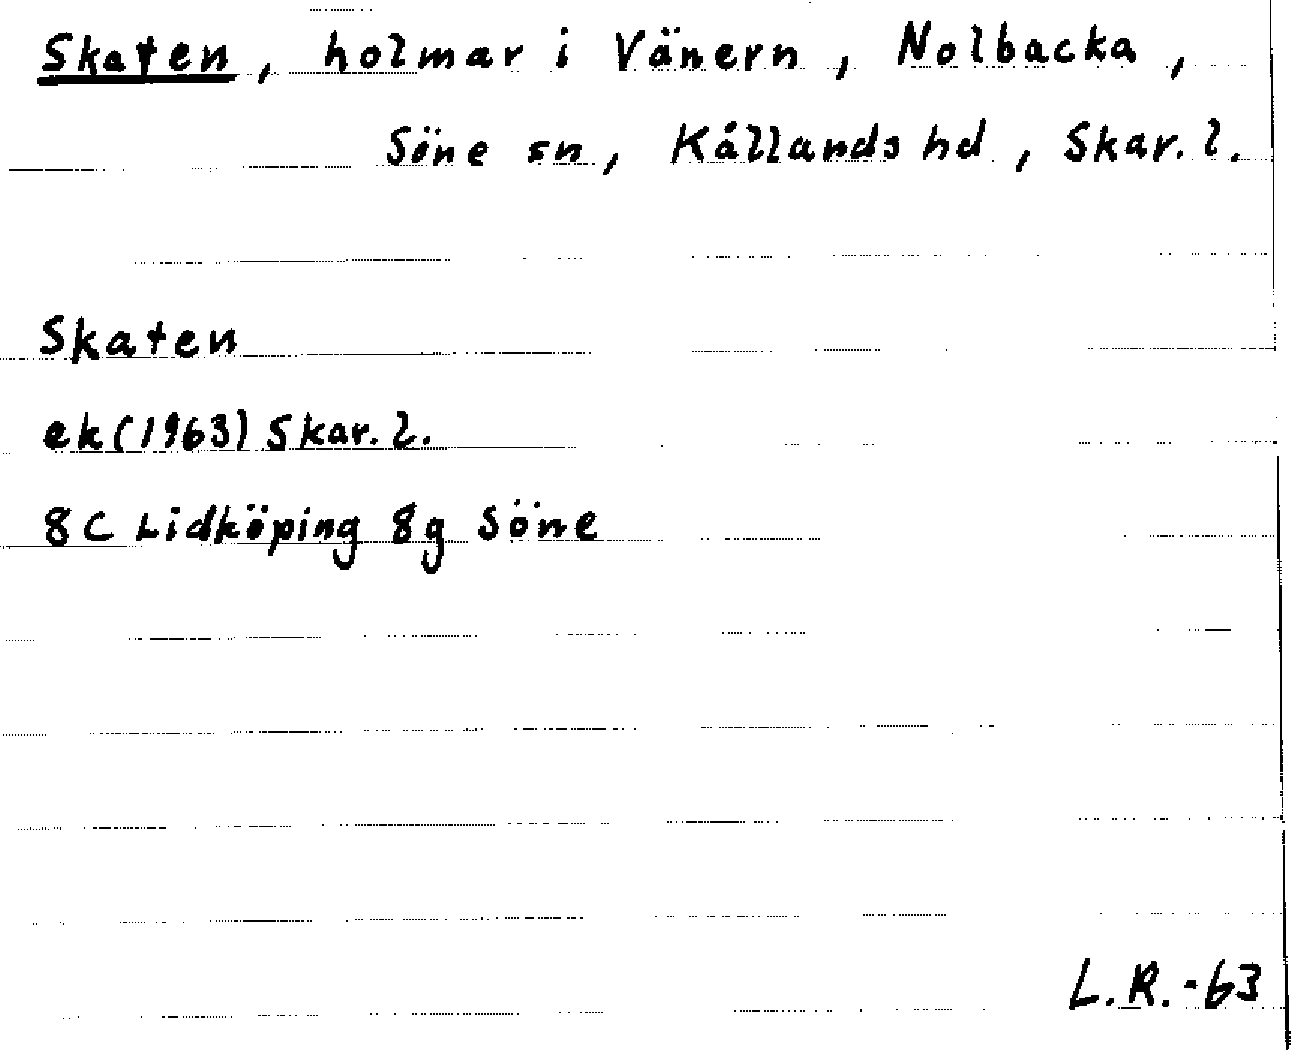 Skaten, holmar i Vänern, Nolbacka,
Söne sn, Kållands hd, Skar. l.
Skaten
ek (1963) Skar. l.
8 C Lidköping 8g Söne
L.R. -63